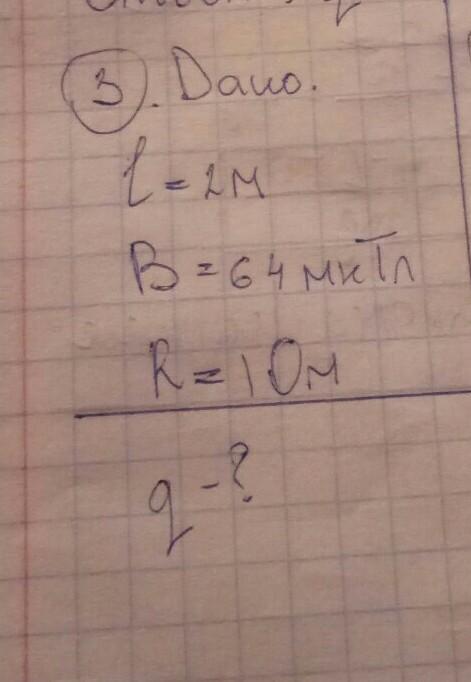 3. Дано.
l = 2м
B = 64 мкТл
R = 1 Ом
q - ?